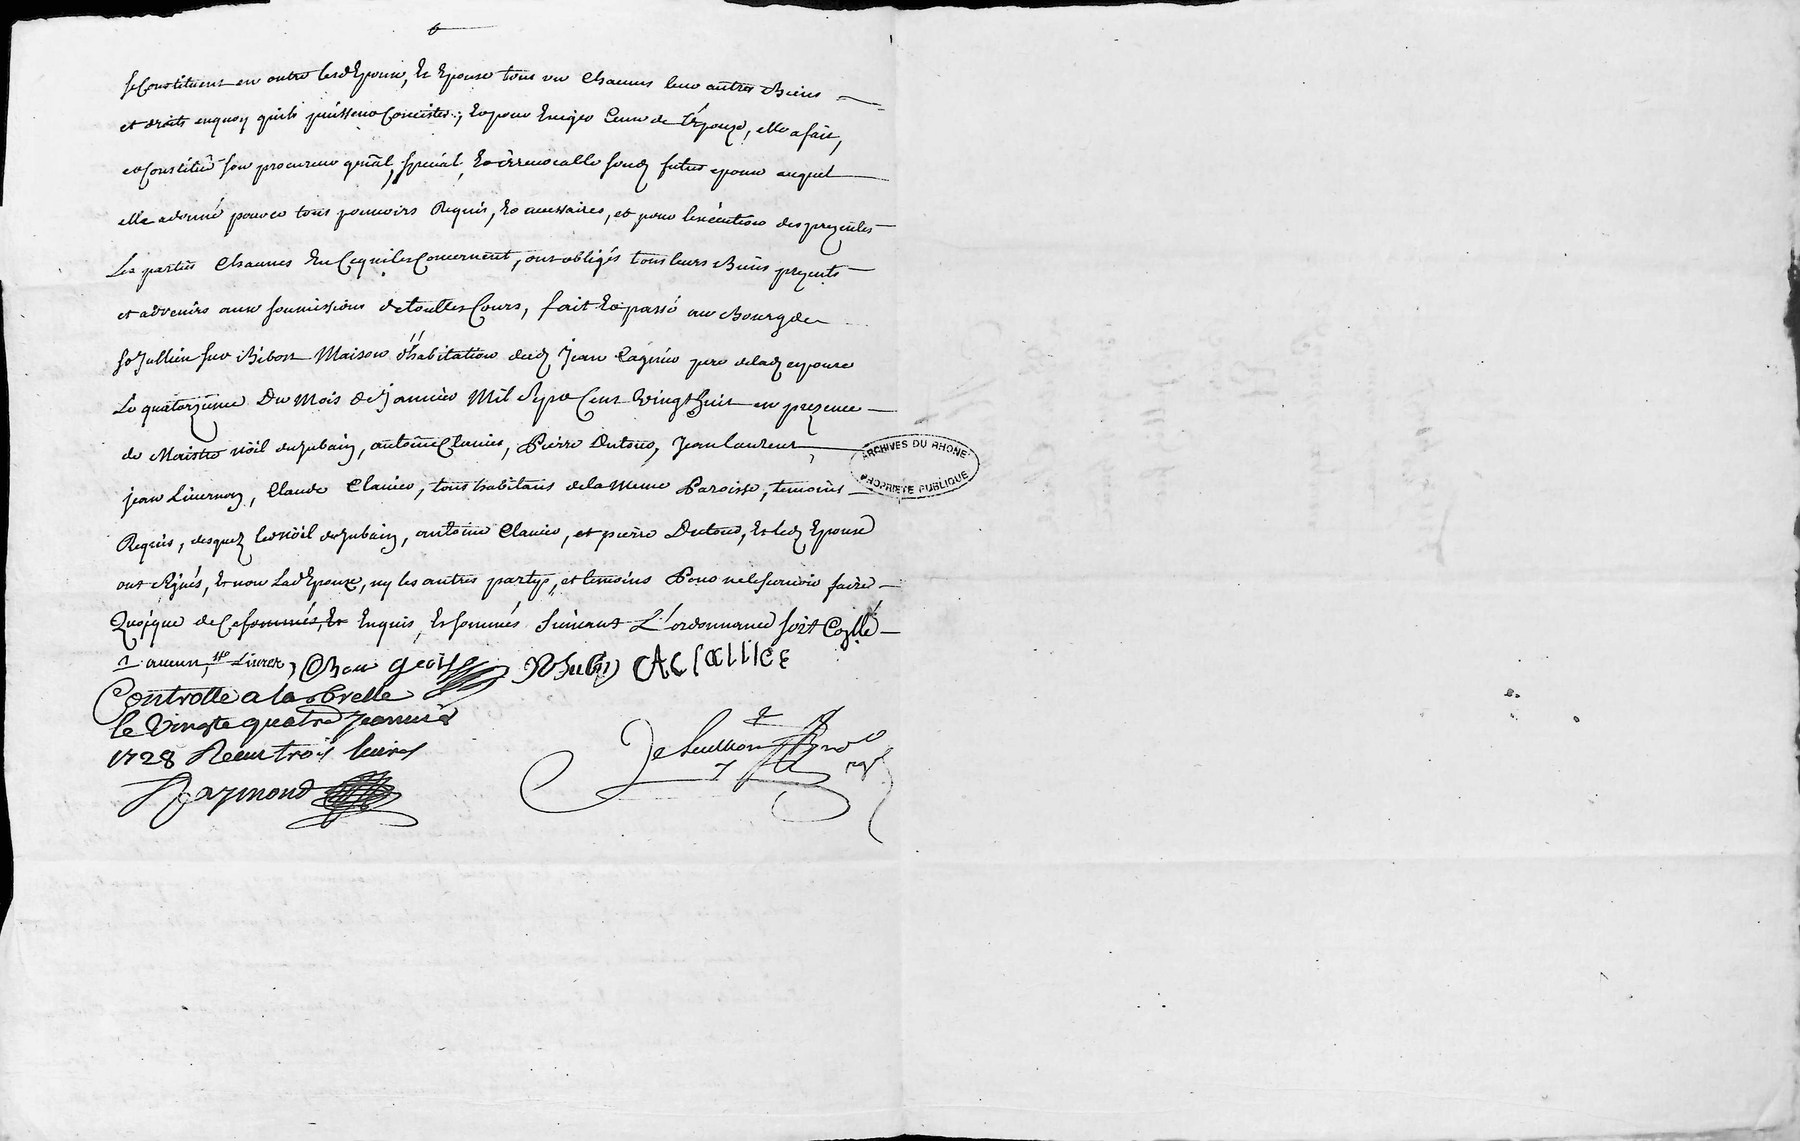 se Constituent en outre lesd Epoux, Et Epouse tous un Chacuns leurs autres Biens
et droits enquoy quils puissent Concister, Et pour Exiger Ceux de l'épouze, elle a fait,
et Constitué son procureur gnãl, spécial, Et irrevocable sond futur epoux auquel
elle a donné pour ce tous pouvoirs Requis, Et necessaires, et pour l'exécution des prezentes
Les parties Chacunes En Ce qui les Concernent, ont obligés tous leurs Biens prezents
et advenirs aux soumissions de touttes Cours, fait Et passé au Bourg de
St Jullien sur Bibost Maison d'habitation dud Jean pere de lad epouze
Le quatorzieme Du Mois de Janvier Mil Sept Cent Vingt huit en prezence
de Noël dujubain, antoine Clavier, Pierre Dutour, Jean Laurent,
jean Livernoy, Claude Clavier, tous habitans de la Meme Paroisse, temoins
Requis, desquez led Noël dujubain, antoine Clavier, et pierre Dutour, Et led Epoux
ont signés, Et non Lad Epouze, ny les autres partyes, et temoins Pour ne le scavoir faire
Quoique de Ce Enquis, Et sommés suivant L'ordonnance soit Cõllé
Controlle a la brelle
le Vingte quatre Jeanvier
1728 Receu trois livres
Raymond
ARCHIVES DU RHONE
PROPRIETE PUBLIQUE